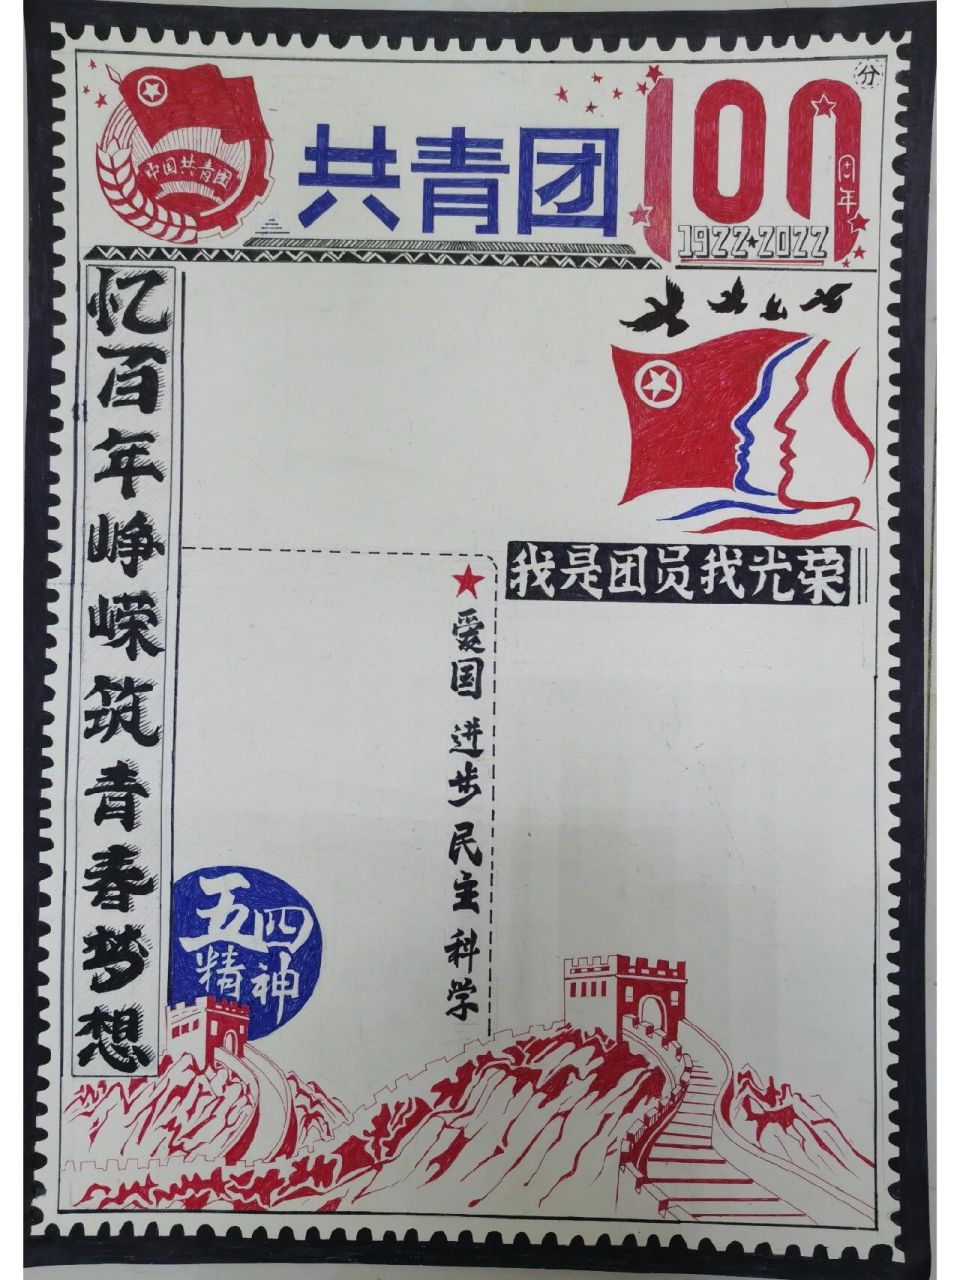 中国共青团
共青团
100
周年
分
1922★2022
忆百年峥嵘筑青春梦想
我是团员我光荣
爱国 进步 民主 科学
五四
精神